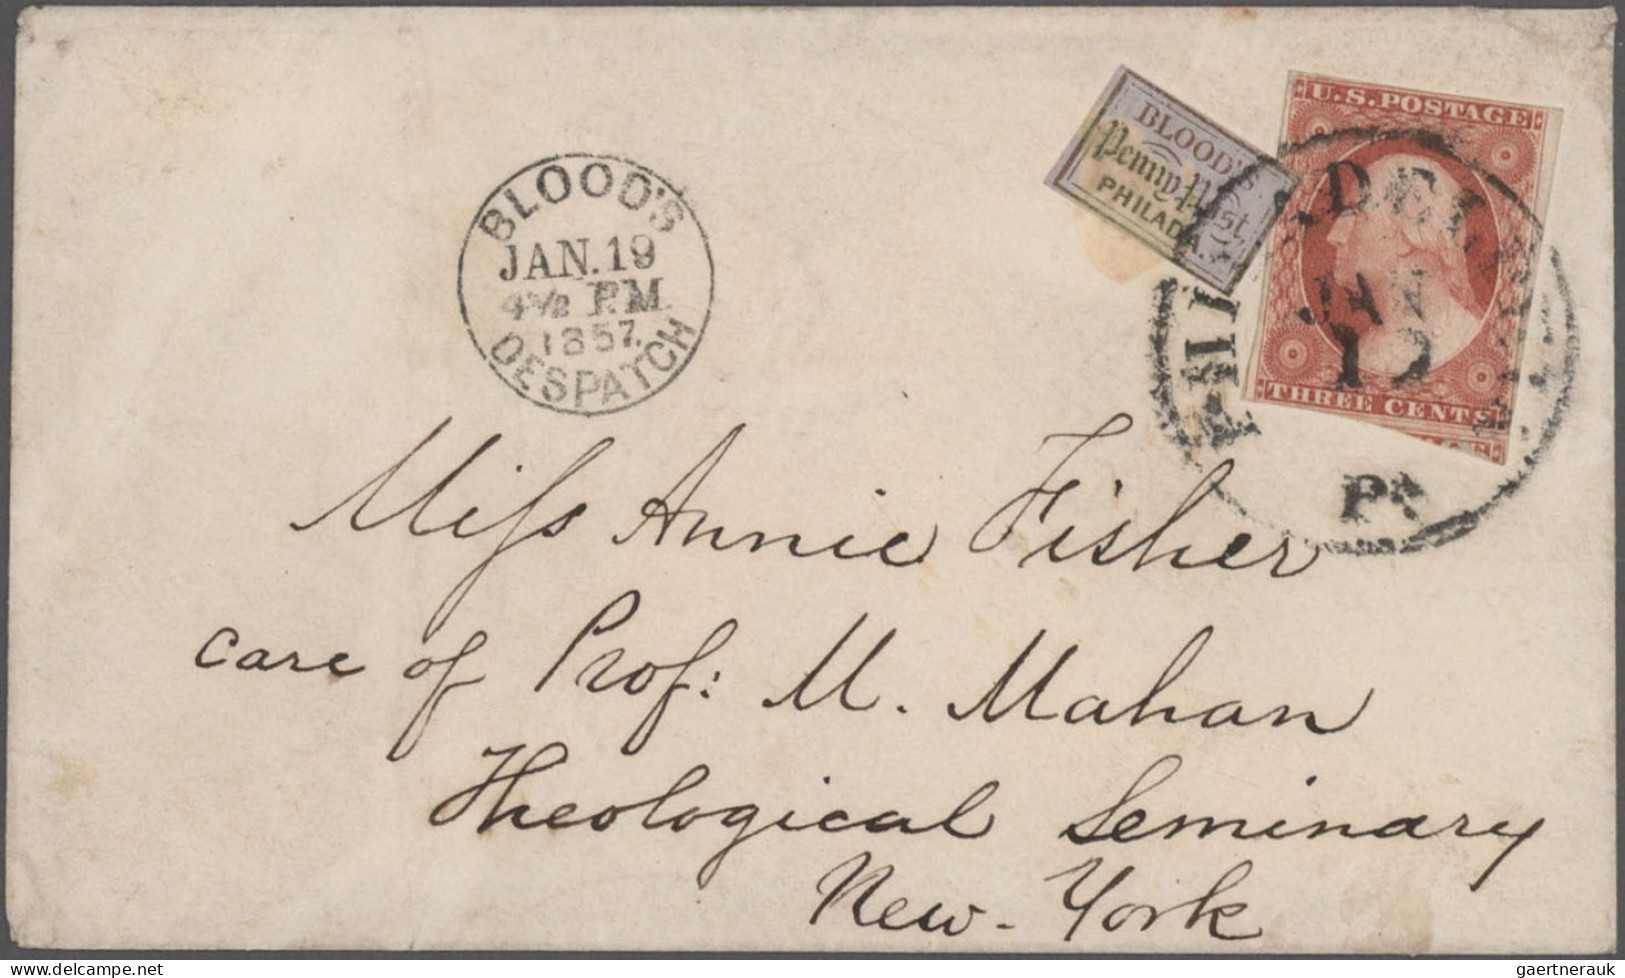 BLOOD'S
JAN. 19
4½ P.M.
1857.
DESPATCH
BLOOD'S
Penny Post.
PHILADA.
U.S. POSTAGE
THREE CENTS
PHILADELPHIA
JAN
19
Pa
Miss Annie Fisher
care of Prof: M. Mahan
Theological Seminary
New-York
gaertnerauk